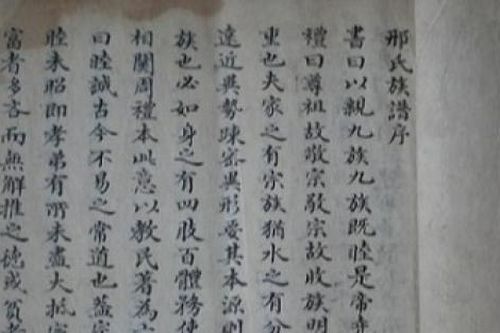 邢氏族譜序
書曰以親九族九族既睦是帝堯
禮曰尊祖故敬宗敬宗故收族明
重也夫家之有宗族猶水之有分
遠近異勢疎密異形要其本源則
族也必如身之有四肢百體務使
相關周禮本此意以教民著為六
曰睦誠古今不易之常道也蓋宗
睦未昭即孝弟有所未盡大抵宗
富者多吝而無解推之德或貧者